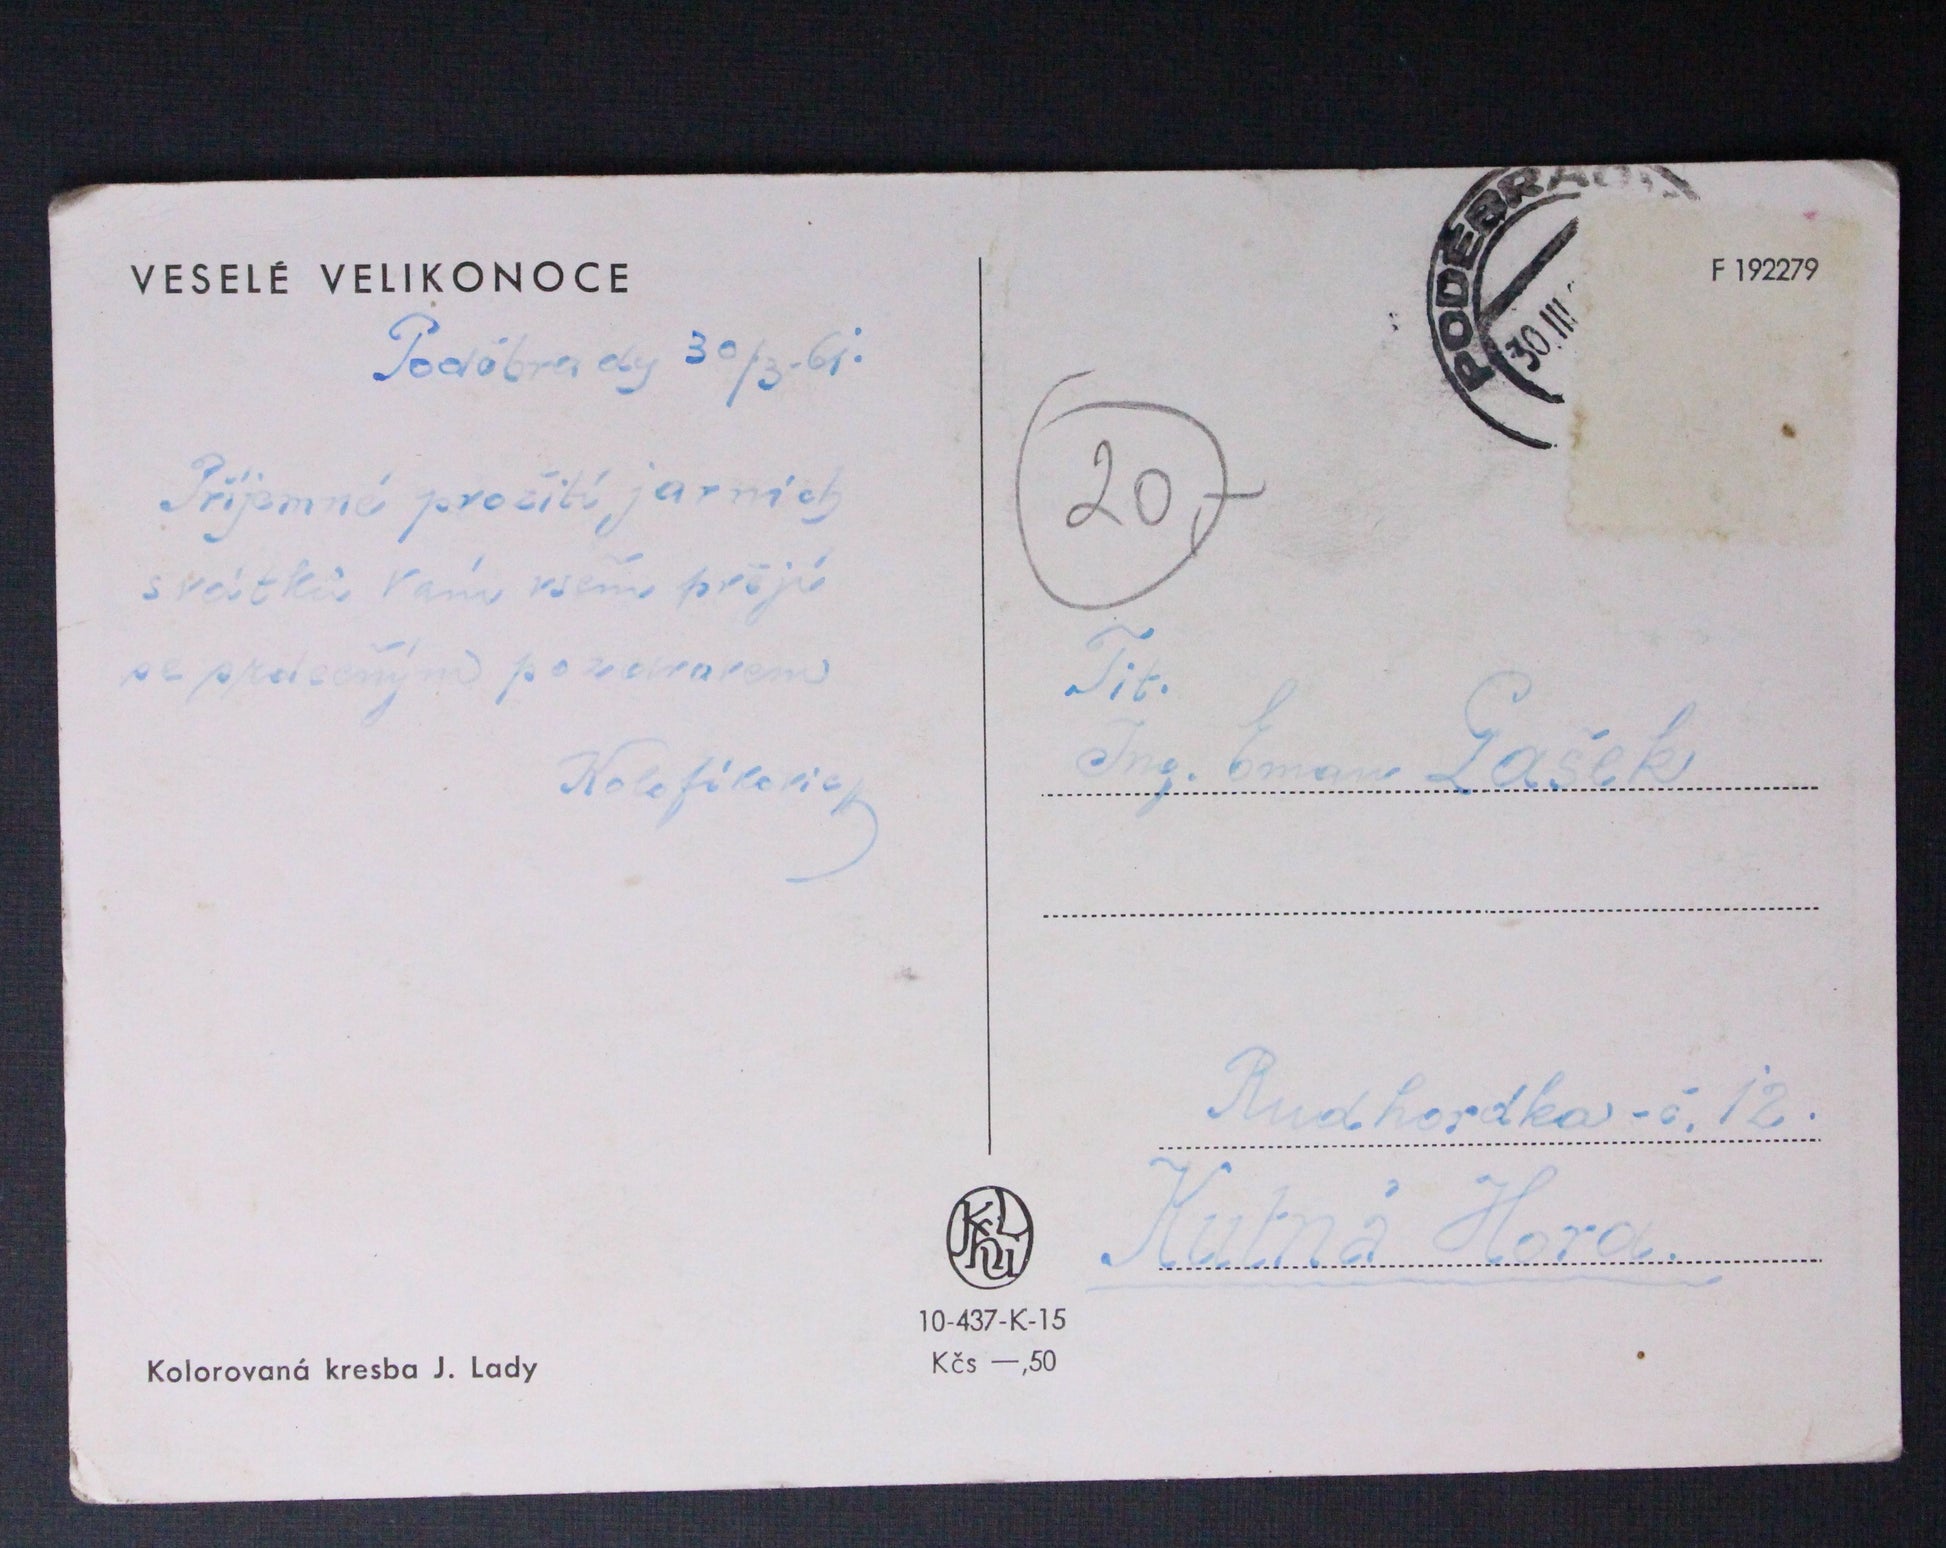 VESELÉ VELIKONOCE
Poděbrady 30/3-61.
Příjemné prožití jarních
svátků Vám všem přejí
se srdečným pozdravem
PODĚBRADY
30.III
F 192279
20,-
Tit.
Ing. Eman Gašek
Rudhordka - č. 12.
Kutná Hora.
10-437-K-15
Kčs —,50
Kolorovaná kresba J. Lady